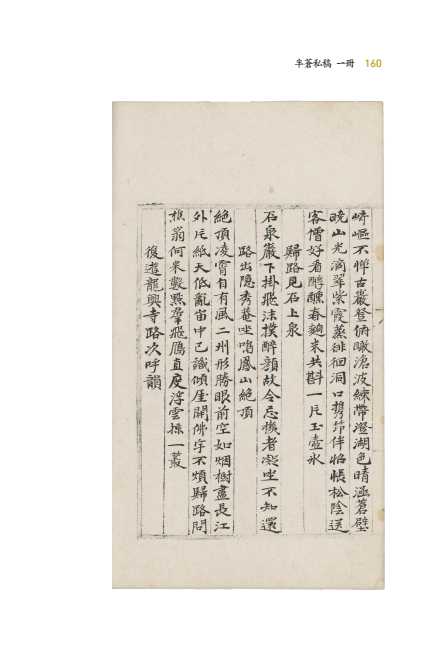 半蒼私稿 一冊 160
崎嶇不憚古巖登俯瞰滄波練帶澄湖色晴涵蒼壁
晩山光滴翠紫霞蒸徘徊洞口携笻伴怊悵松陰送
客僧好看醇醲春麴米共斟一片玉壺氷
歸路見石上泉
石泉巖下掛飛沫撲醉顔故令忘機者凝坐不知還
路出隱秀菴坐鳴鳳山絶頂
絶頂凌霄自有風二州形勝眼前空如烟樹畫長江
外片紙天低亂畓中已識傾厓開佛宇不煩歸路問
樵翁何來數點羣飛鴈直度浮雲掠一叢
復遊龍興寺路次呼韻